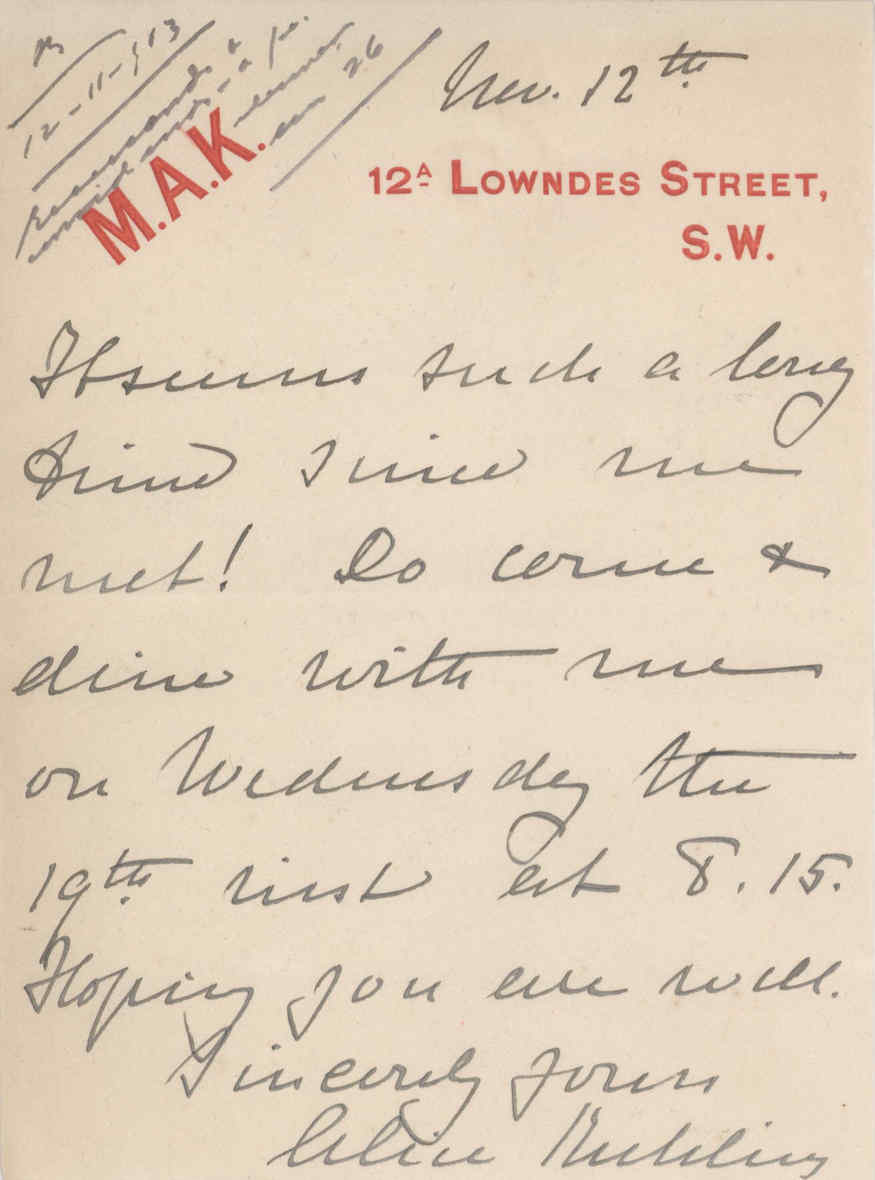 R
12-11-13
M.A.K.
26
Nov. 12th
12A LOWNDES STREET,
S.W.
It seems such a long
time since we
met! Do come &
dine with me
on Wednesday the
19th inst at 8.15.
Hoping you are well.
Sincerely yours